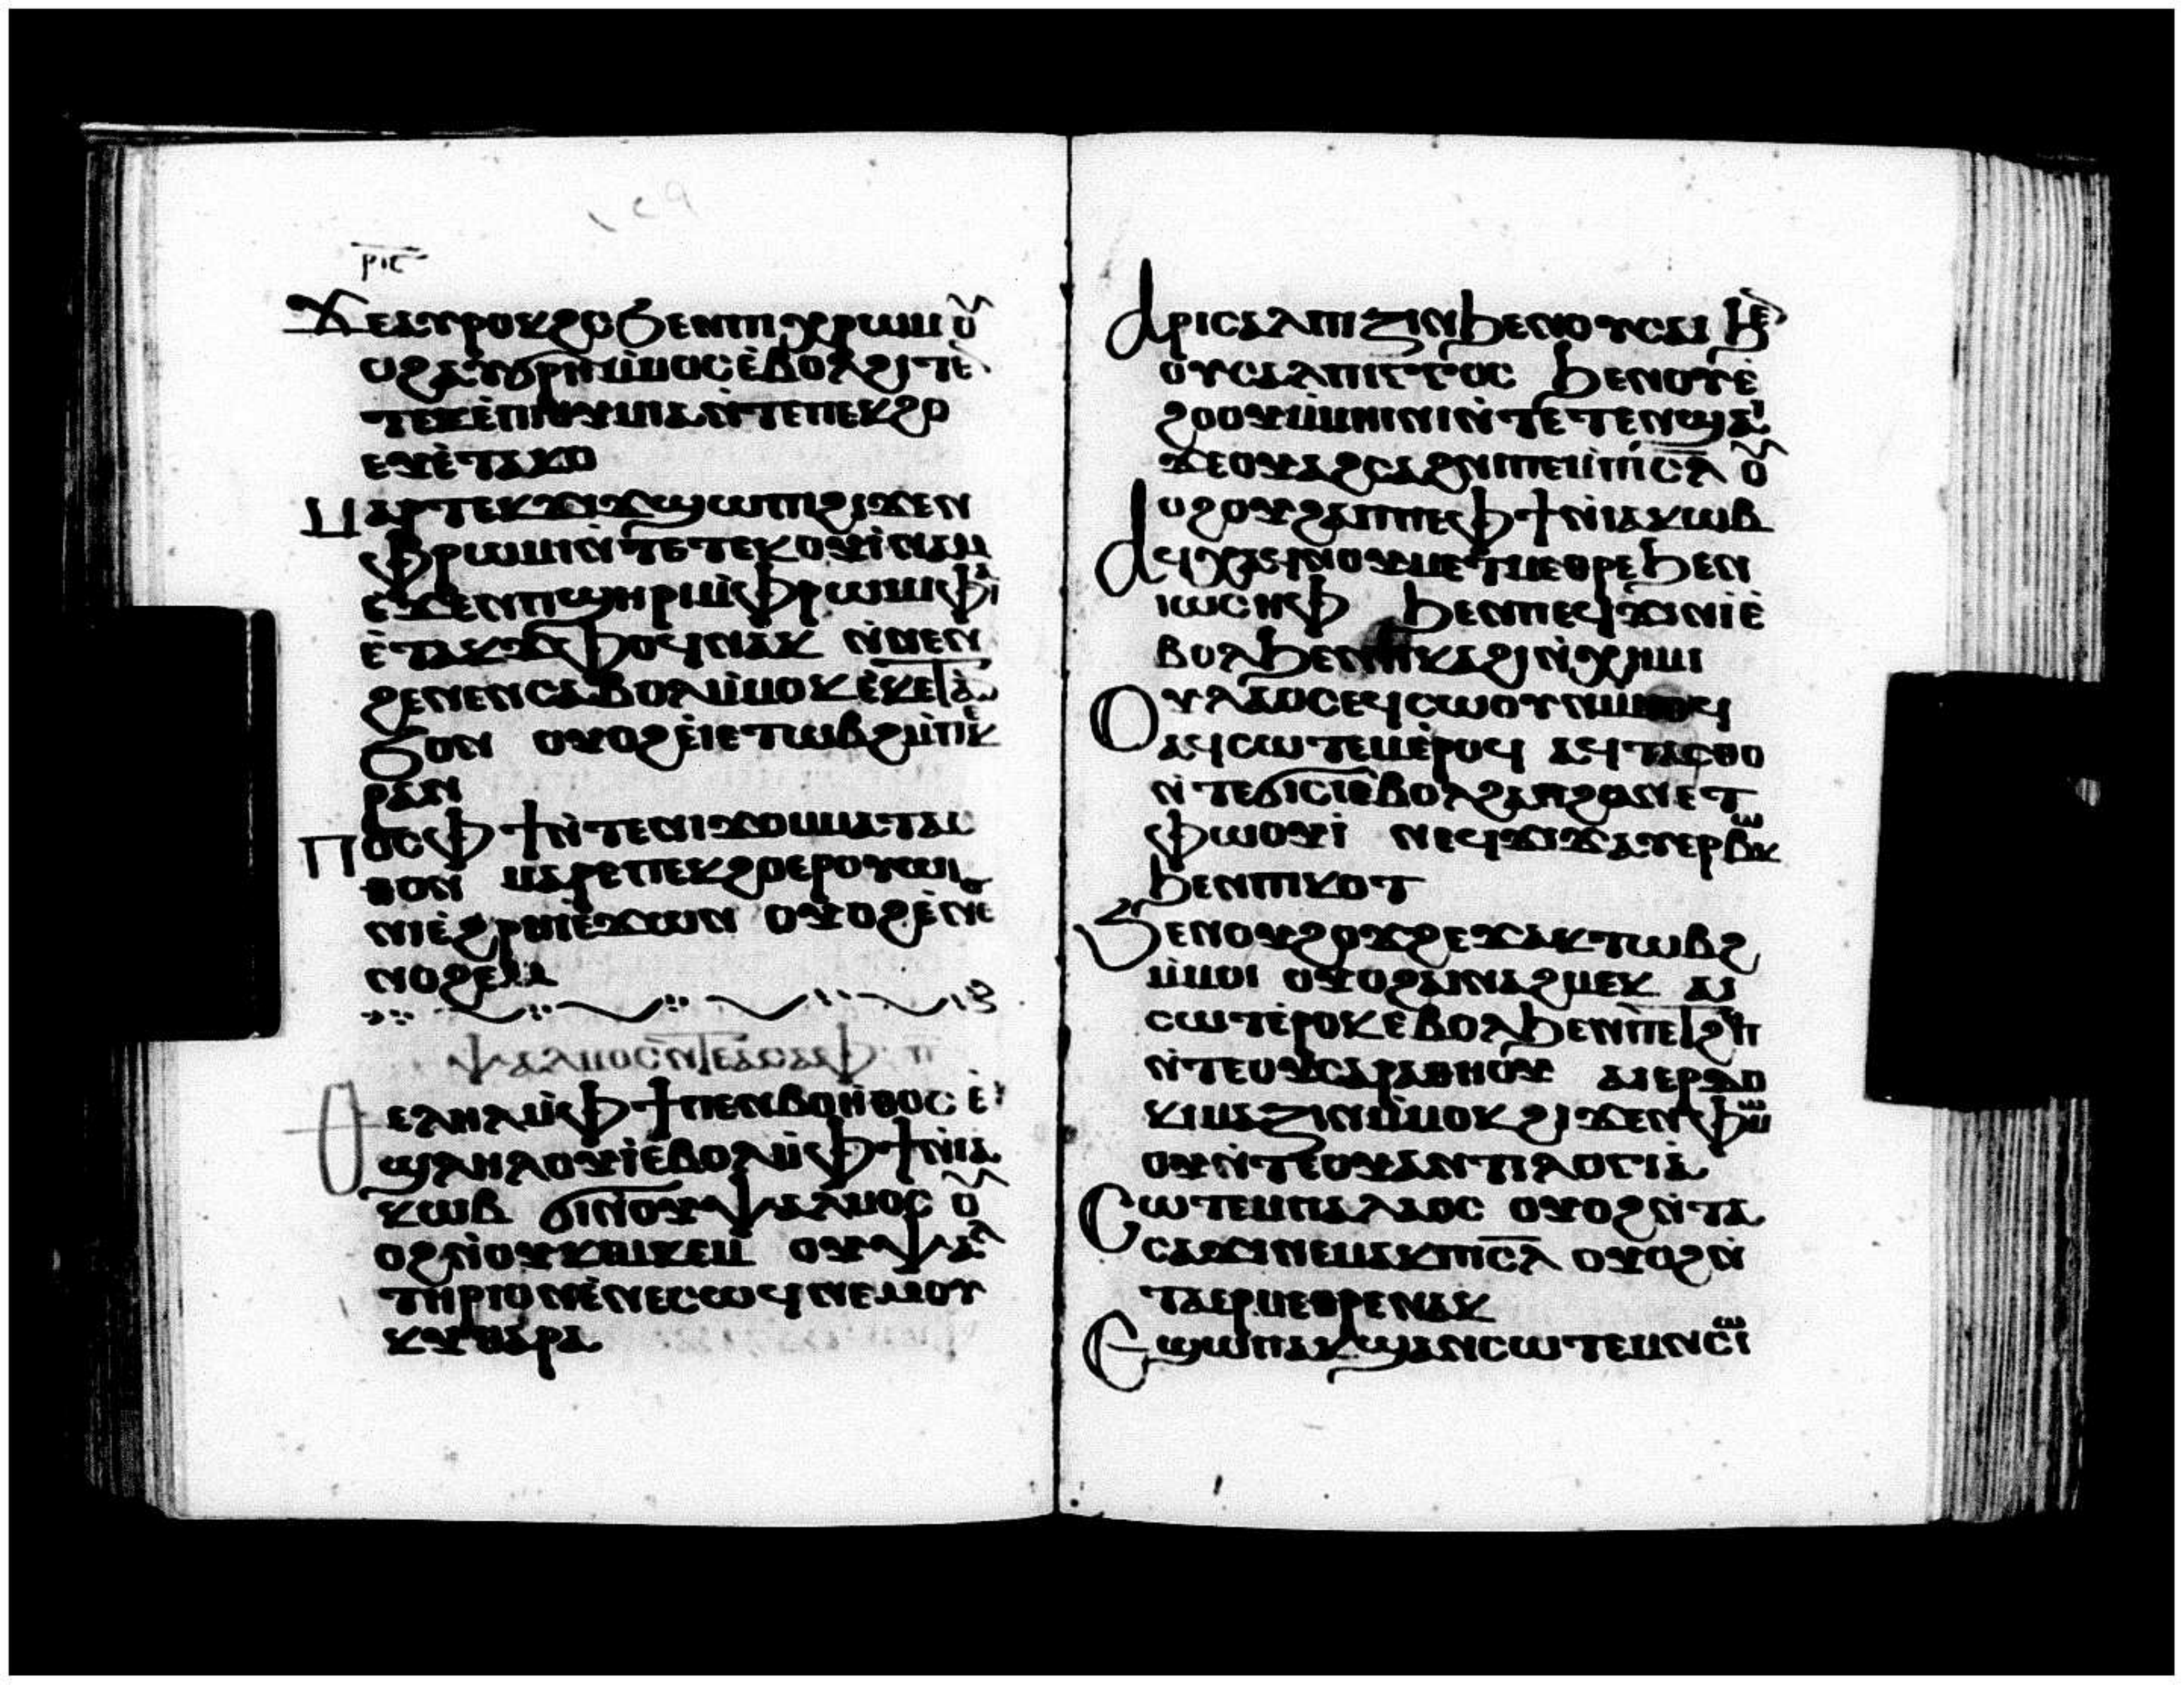 ⲣⲓⲋ
ϫⲉⲁⲩⲣⲟⲕϩⲥ ϧⲉⲛⲡⲓⲭⲣⲱⲙ ⲟⲩ
ⲉⲧⲁⲕⲟ
ⲙⲁⲣⲧⲉⲕϫⲓϫϣⲱⲡⲓϩⲓϫⲉⲛ
ⲫⲣⲱⲙⲓⲛ̀ⲧⲉⲧⲉⲕⲟⲩⲓ̀ⲛⲁⲙ
ⲉϫⲉⲛⲡϣⲏⲣⲓⲙ̀ⲫⲣⲱⲙⲓⲫⲁⲓ
ⲉ̀ⲧⲁⲕⲧⲁϫⲣⲟϥⲛⲁⲕ ⲛ̀ⲛⲉⲛ
ϩⲉⲛⲉⲛⲥⲁⲃⲟⲗⲙ̀ⲙⲟⲕⲉ̀ⲕⲉⲧⲁⲛ
ϧⲟⲛ ⲟⲩⲟϩⲉ̀ⲓⲉⲧⲱⲃϩⲙ̀ⲡⲉⲕ
ⲣⲁⲛ
ⲡⲟⲥⲫϯⲛ̀ⲧⲉⲛⲓϫⲟⲙⲙⲁⲧⲁⲥ
ⲑⲟⲛ ⲙⲁⲣⲉⲡⲉⲕϩⲟⲉⲣⲟⲩⲱⲓ
ⲛⲓⲉ̀ϩⲣⲏⲓⲉ̀ϫⲱⲛ ⲟⲩⲟϩⲉ̀ⲛⲉ
ⲛⲟϩⲉⲙ
ⲯⲁⲗⲙⲟⲥⲛ̀ⲧⲉⲁⲥⲁⲫ ⲡ
ⲑⲉⲗⲏⲗⲙ̀ⲫϯⲡⲉⲛⲃⲟⲏⲑⲟⲥ ⲉ̀
ϣⲗⲏⲗⲟⲩⲓ̀ⲉ̀ⲃⲟⲗⲙ̀ⲫϯⲛ̀ⲓⲁ
ⲕⲱⲃ ϭⲓⲛ̀ⲟⲩⲯⲁⲗⲙⲟⲥ ⲟⲩ
ⲟϩⲙ̀ⲟⲓⲛ̀ⲟⲩⲕⲉⲙⲕⲉⲙ ⲟⲩⲯⲁⲗ
ⲧⲏⲣⲓⲟⲛⲉ̀ⲛⲉⲥⲱϥⲛⲉⲙⲟⲩ
ⲕⲩⲑⲁⲣⲁ
ⲁⲣⲓⲥⲁⲗⲡⲓⲍⲓⲛϧⲉⲛⲟⲩⲥⲁⲓ ϧⲉⲛ
ⲟⲩⲥⲁⲗⲡⲓⲅⲅⲟⲥ ϧⲉⲛⲟⲩⲉ̀
ϩⲟⲟⲩⲙ̀ⲙⲏⲓⲛⲓⲛ̀ⲧⲉⲧⲉⲛϣⲁⲓ
ϫⲉⲟⲩⲁϩⲥⲁϩⲛⲓⲡⲉⲙ̀ⲡⲓⲥⲗ ⲟⲩ
ⲟϩⲟⲩϩⲁⲡⲡⲉⲫϯⲛ̀ⲓⲁⲕⲱⲃ
ⲁϥⲭⲁⲥⲛ̀ⲟⲩⲙⲉⲧⲙⲉⲑⲣⲉϧⲉⲛ
ⲓⲱⲥⲏⲫ ϧⲉⲛⲡⲉϥϫⲓⲛⲓ̀ⲉ̀
ⲃⲟⲗϧⲉⲛⲡⲕⲁϩⲓⲛ̀ⲭⲏⲙⲓ
ⲟⲩⲗⲁⲟⲥⲉϥⲥⲱⲟⲩⲛⲙ̀ⲙⲟϥ
ⲁϥⲥⲱⲧⲉⲙⲉ̀ⲣⲟϥ ⲁϥⲧⲁⲥⲑⲟ
ⲛ̀ⲧⲉϭⲓⲥⲓⲉ̀ⲃⲟⲗϩⲁⲛϩⲁⲛⲉⲧ
ⲫⲱⲟⲩⲓ̀ ⲛⲉϥϫⲓϫⲁⲩⲉⲣⲃⲱⲕ
ϧⲉⲛⲡⲓⲕⲟⲧ
ϧⲉⲛⲟⲩϩⲟϫϩⲉϫⲁⲕⲧⲱⲃϩ
ⲙ̀ⲙⲟⲓ ⲟⲩⲟϩⲁⲓⲛⲁϩⲙⲉⲕ ⲁⲓ
ⲥⲱⲧⲉ̀ⲣⲟⲕⲉ̀ⲃⲟⲗϧⲉⲛⲡⲉⲧϩⲏⲡ
ⲛ̀ⲧⲉⲟⲩⲥⲁⲣⲁⲑⲏⲟⲩ ⲁⲓⲉⲣⲇⲟ
ⲕⲓⲙⲁⲍⲓⲛⲙ̀ⲙⲟⲕϩⲓϫⲉⲛⲫⲙⲱ
ⲟⲩⲛ̀ⲧⲉⲟⲩⲁⲛⲧⲓⲗⲟⲅⲓⲁ
ⲥⲱⲧⲉⲙⲡⲁⲗⲁⲟⲥ ⲟⲩⲟϩⲛ̀ⲧⲁ
ⲥⲁϫⲓⲛⲉⲙⲁⲕⲡⲓⲥⲗ ⲟⲩⲟϩⲛ̀
ⲧⲁⲉⲣⲙⲉⲑⲣⲉⲛⲁⲕ
ⲉϣⲱⲡⲁⲕϣⲁⲛⲥⲱⲧⲉⲙⲛ̀ⲥⲱⲓ